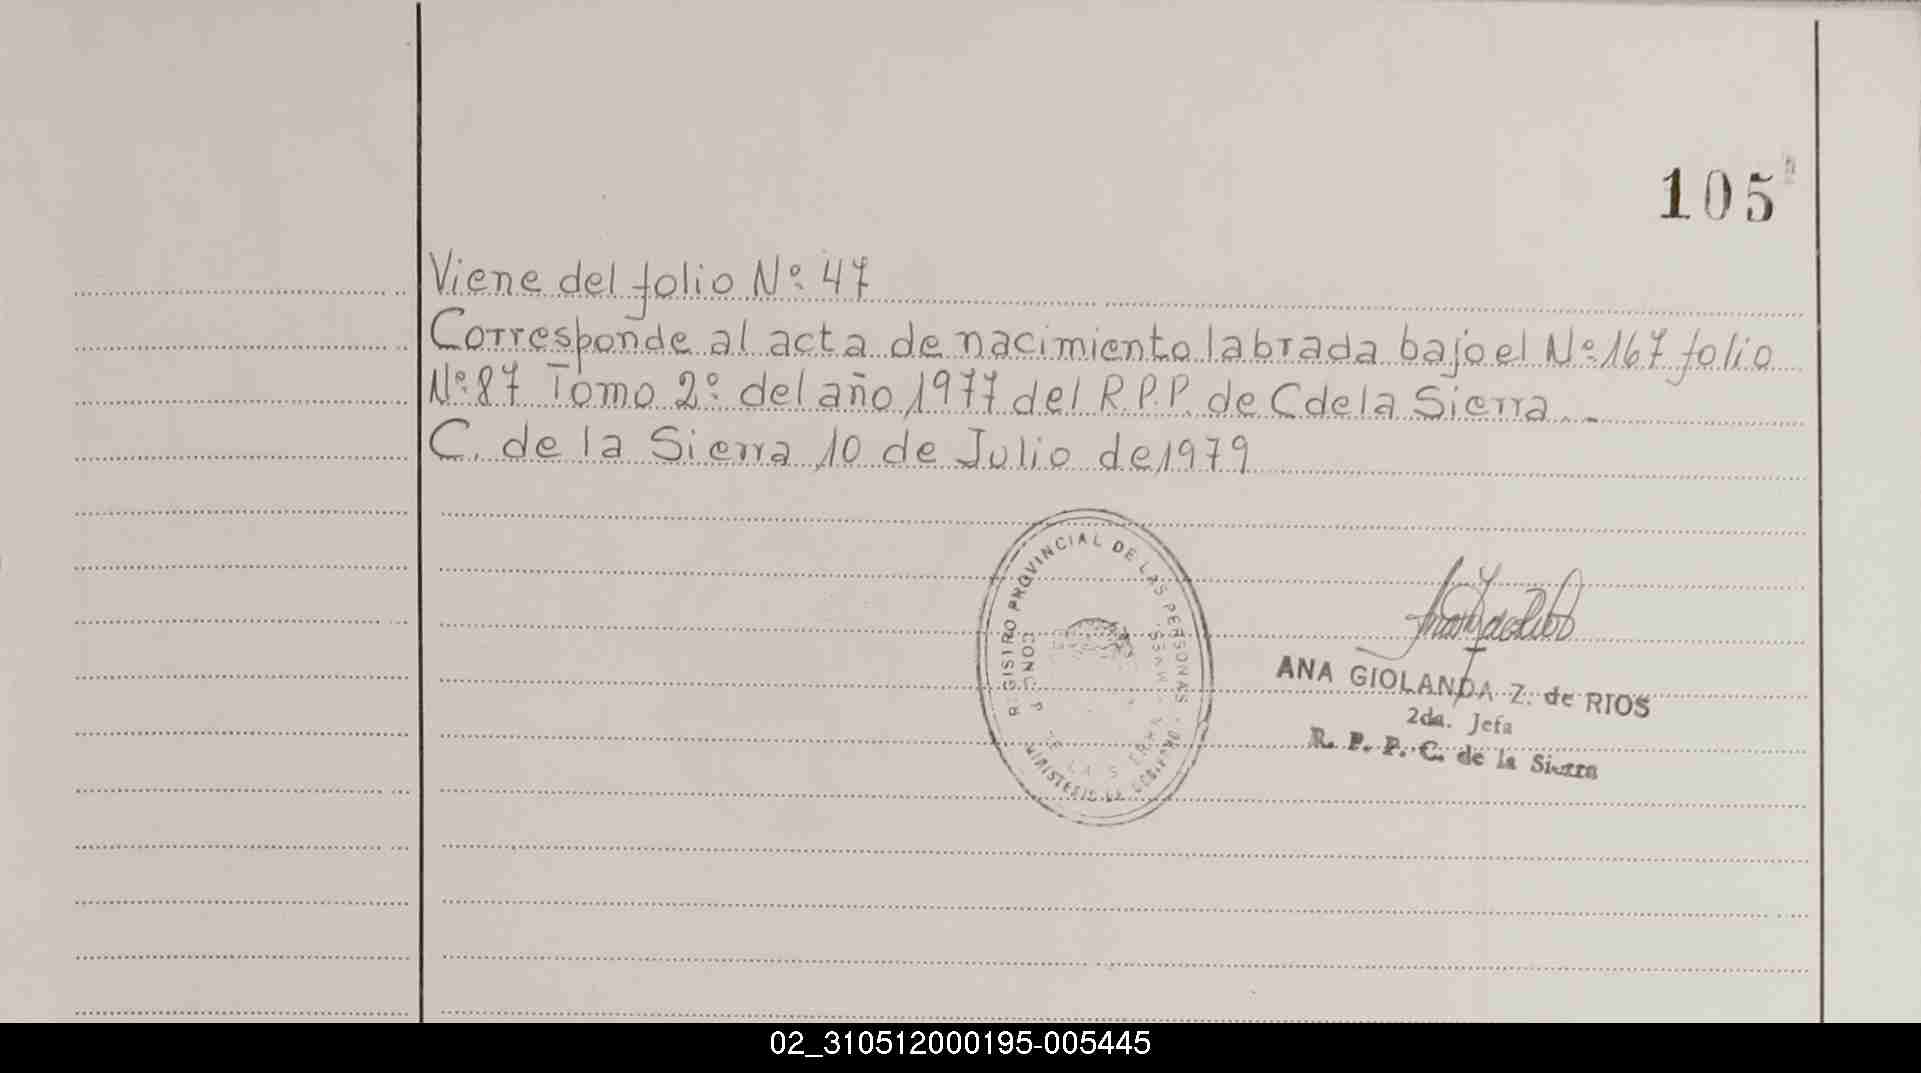 105
Viene del folio Nº: 47
Corresponde al acta de nacimiento labrada bajo el Nº: 167 folio
Nº: 87 Tomo 2º: del año 1977 del R.P.P. de C de la Sierra..-
C. de la Sierra 10 de Julio de 1979
REGISTRO PROVINCIAL DE LAS PERSONAS
MINISTERIO DE GOBIERNO
ANA GIOLANDA Z. de RIOS
2da. Jefa
R. P. P. C. de la Sierra
02_310512000195-005445